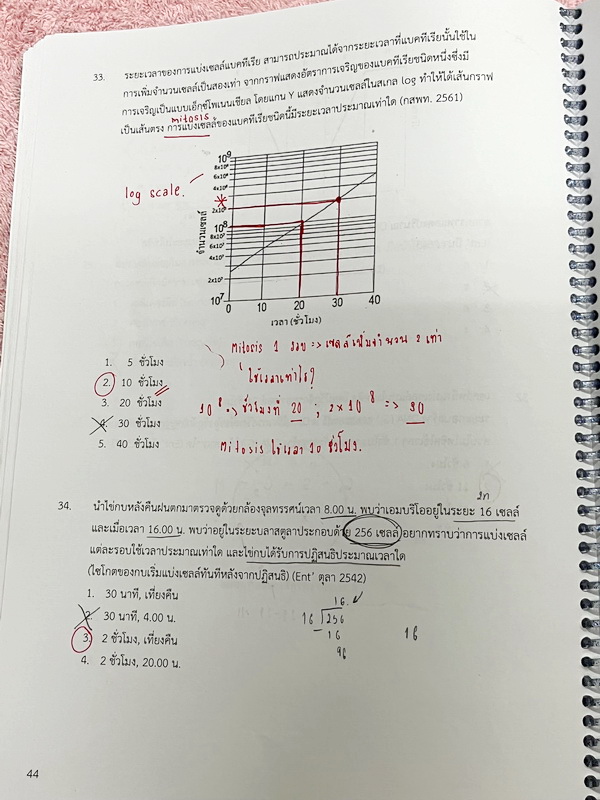 33. ระยะเวลาของการแบ่งเซลล์แบคทีเรีย สามารถประมาณได้จากระยะเวลาที่แบคทีเรียนั้นใช้ใน
การเพิ่มจำนวนเซลล์เป็นสองเท่า จากกราฟแสดงอัตราการเจริญของแบคทีเรียชนิดหนึ่งซึ่งมี
การเจริญเป็นแบบเอ็กซ์โพเนนเชียล โดยแกน Y แสดงจำนวนเซลล์ในสเกล log ทำให้ได้เส้นกราฟ
mitosis
เป็นเส้นตรง การแบ่งเซลล์ของแบคทีเรียชนิดนี้มีระยะเวลาประมาณเท่าใด (กสพท. 2561)
log scale.
จำนวนเซลล์
10⁹
8x10⁸
6x10⁸
4x10⁸
2x10⁸
10⁸
8x10⁷
6x10⁷
4x10⁷
2x10⁷
10⁷
0 10 20 30 40
เวลา (ชั่วโมง)
Mitosis 1 รอบ => เซลล์เพิ่มจำนวน 2 เท่า
ใช้เวลาเท่าไร?
10⁸ => ชั่วโมงที่ 20 ; 2 x 10⁸ => 30
Mitosis ใช้เวลา 10 ชั่วโมง.
1. 5 ชั่วโมง
2. 10 ชั่วโมง
3. 20 ชั่วโมง
4. 30 ชั่วโมง
5. 40 ชั่วโมง
34. นำไข่กบหลังคืนฝนตกมาตรวจดูด้วยกล้องจุลทรรศน์เวลา 8.00 น. พบว่าเอมบริโออยู่ในระยะ 16 เซลล์
และเมื่อเวลา 16.00 น. พบว่าอยู่ในระยะบลาสตูลาประกอบด้วย 256 เซลล์ อยากทราบว่าการแบ่งเซลล์
แต่ละรอบใช้เวลาประมาณเท่าใด และไข่กบได้รับการปฏิสนธิประมาณเวลาใด
(ไซโกตของกบเริ่มแบ่งเซลล์ทันทีหลังจากปฏิสนธิ) (Ent' ตุลา 2542)
1. 30 นาที, เที่ยงคืน
2. 30 นาที, 4.00 น.
3. 2 ชั่วโมง, เที่ยงคืน
4. 2 ชั่วโมง, 20.00 น.
16.
16 256
16
96
16
44